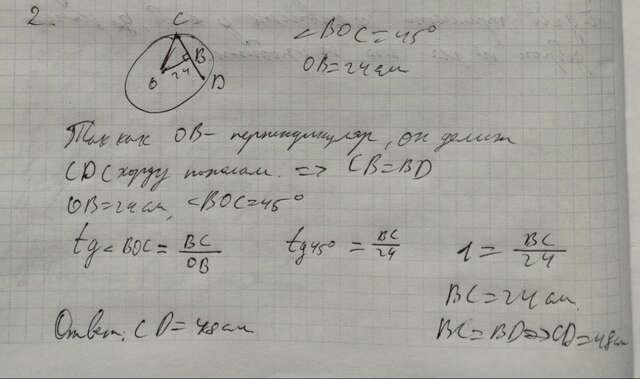 2.
C
B
O 24
D
<BOC=45°
OB=24см
Так как OB- перпендикуляр, он делит
CD(хорду пополам. => CB=BD
OB=24см, <BOC=45°
tg<BOC = BC/OB tg45° = BC/24 1 = BC/24
BC=24см.
BC=BD=>CD=48см
Ответ: CD=48см